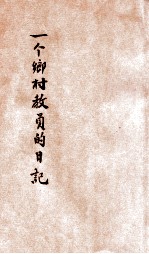 一个鄉村教員的日記